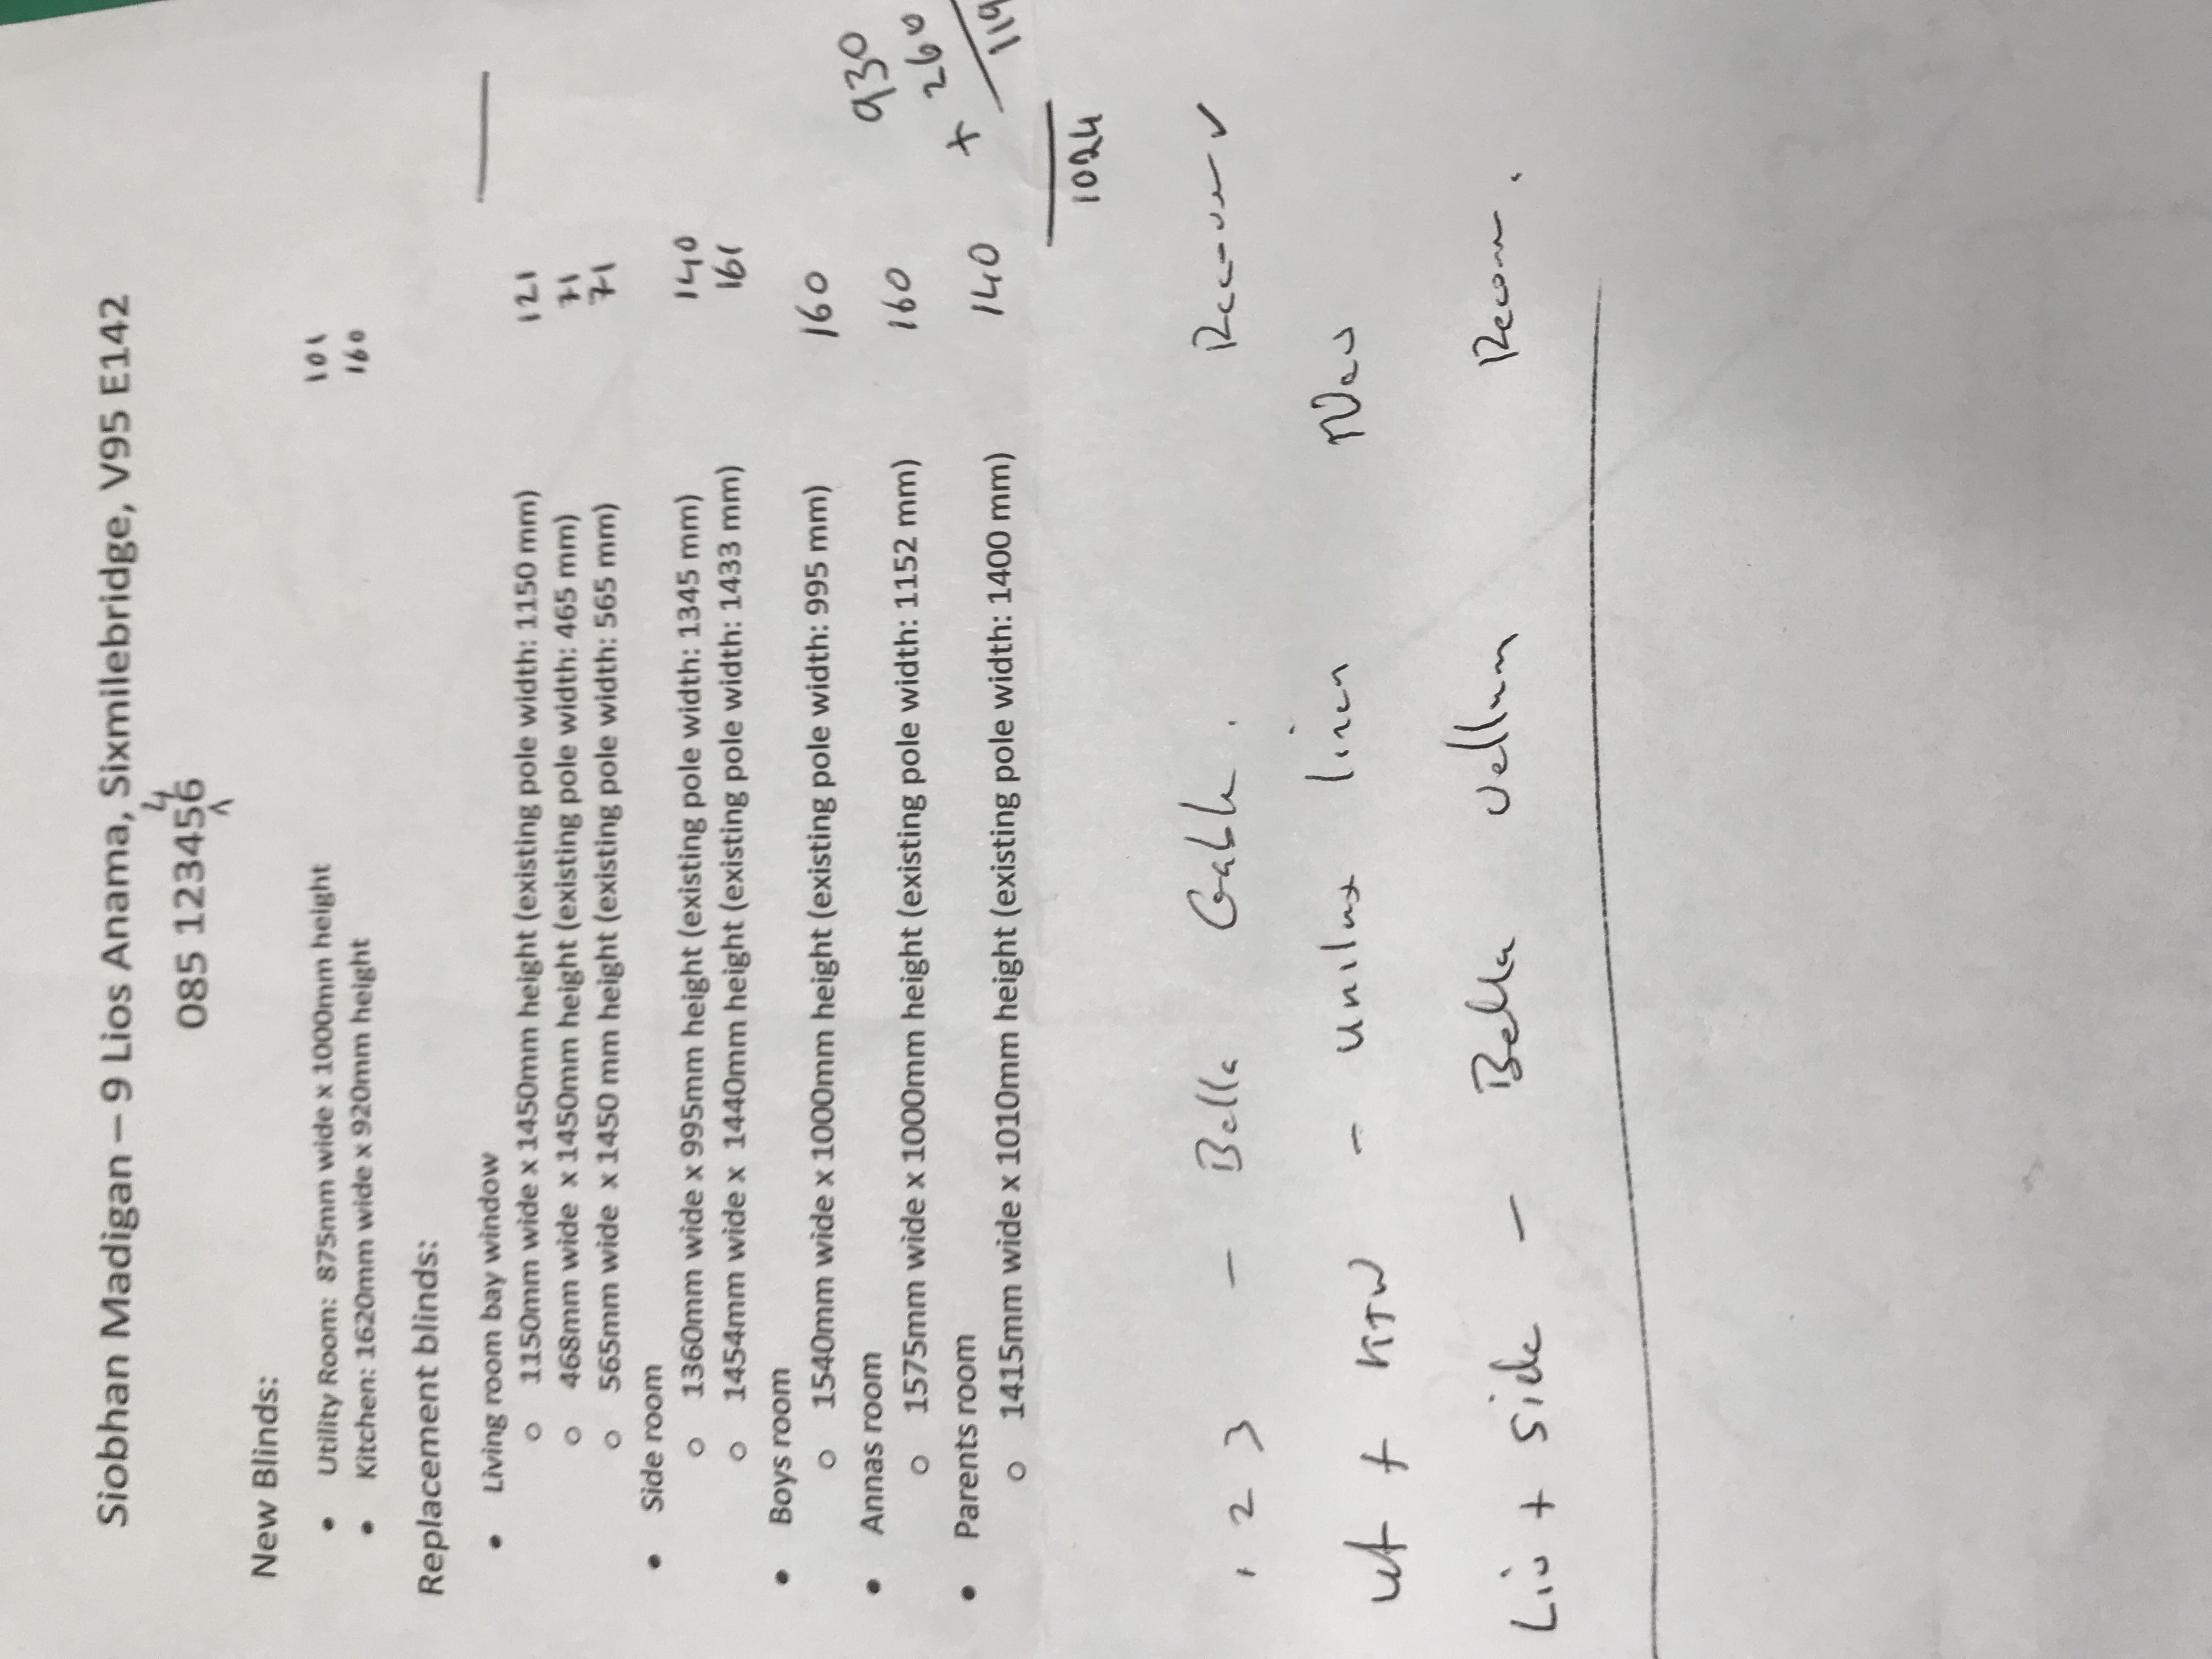 Siobhan Madigan – 9 Lios Anama, Sixmilebridge, V95 E142
4
085 123456
^
New Blinds:
• Utility Room: 875mm wide x 1000mm height 101
• Kitchen: 1620mm wide x 920mm height 160
Replacement blinds:
• Living room bay window
o 1150mm wide x 1450mm height (existing pole width: 1150 mm) 121
o 468mm wide x 1450mm height (existing pole width: 465 mm) 71
o 565mm wide x 1450 mm height (existing pole width: 565 mm) 71
• Side room
o 1360mm wide x 995mm height (existing pole width: 1345 mm) 140
o 1454mm wide x 1440mm height (existing pole width: 1433 mm) 161
• Boys room
o 1540mm wide x 1000mm height (existing pole width: 995 mm) 160
930
• Annas room
o 1575mm wide x 1000mm height (existing pole width: 1152 mm) 160
+ 260
• Parents room
o 1415mm wide x 1010mm height (existing pole width: 1400 mm) 140
119
1024
1 2 3 - Bella Recover ✓
ut + KIT - unilux linen New
Liv + side - Bella vellum Recov.